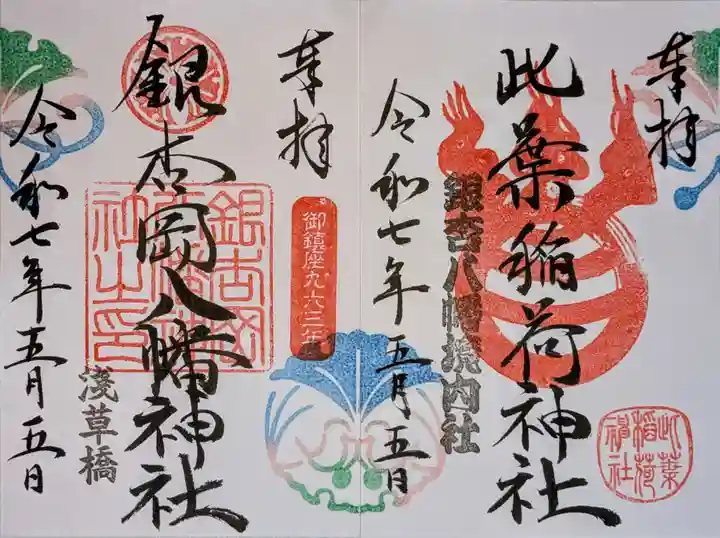 奉拝
此葉稲荷神社
銀杏八幡境内社
此葉稲荷神社
令和七年五月五日
奉拝
御鎮座九六三年
銀杏岡八幡神社
浅草橋
令和七年五月五日